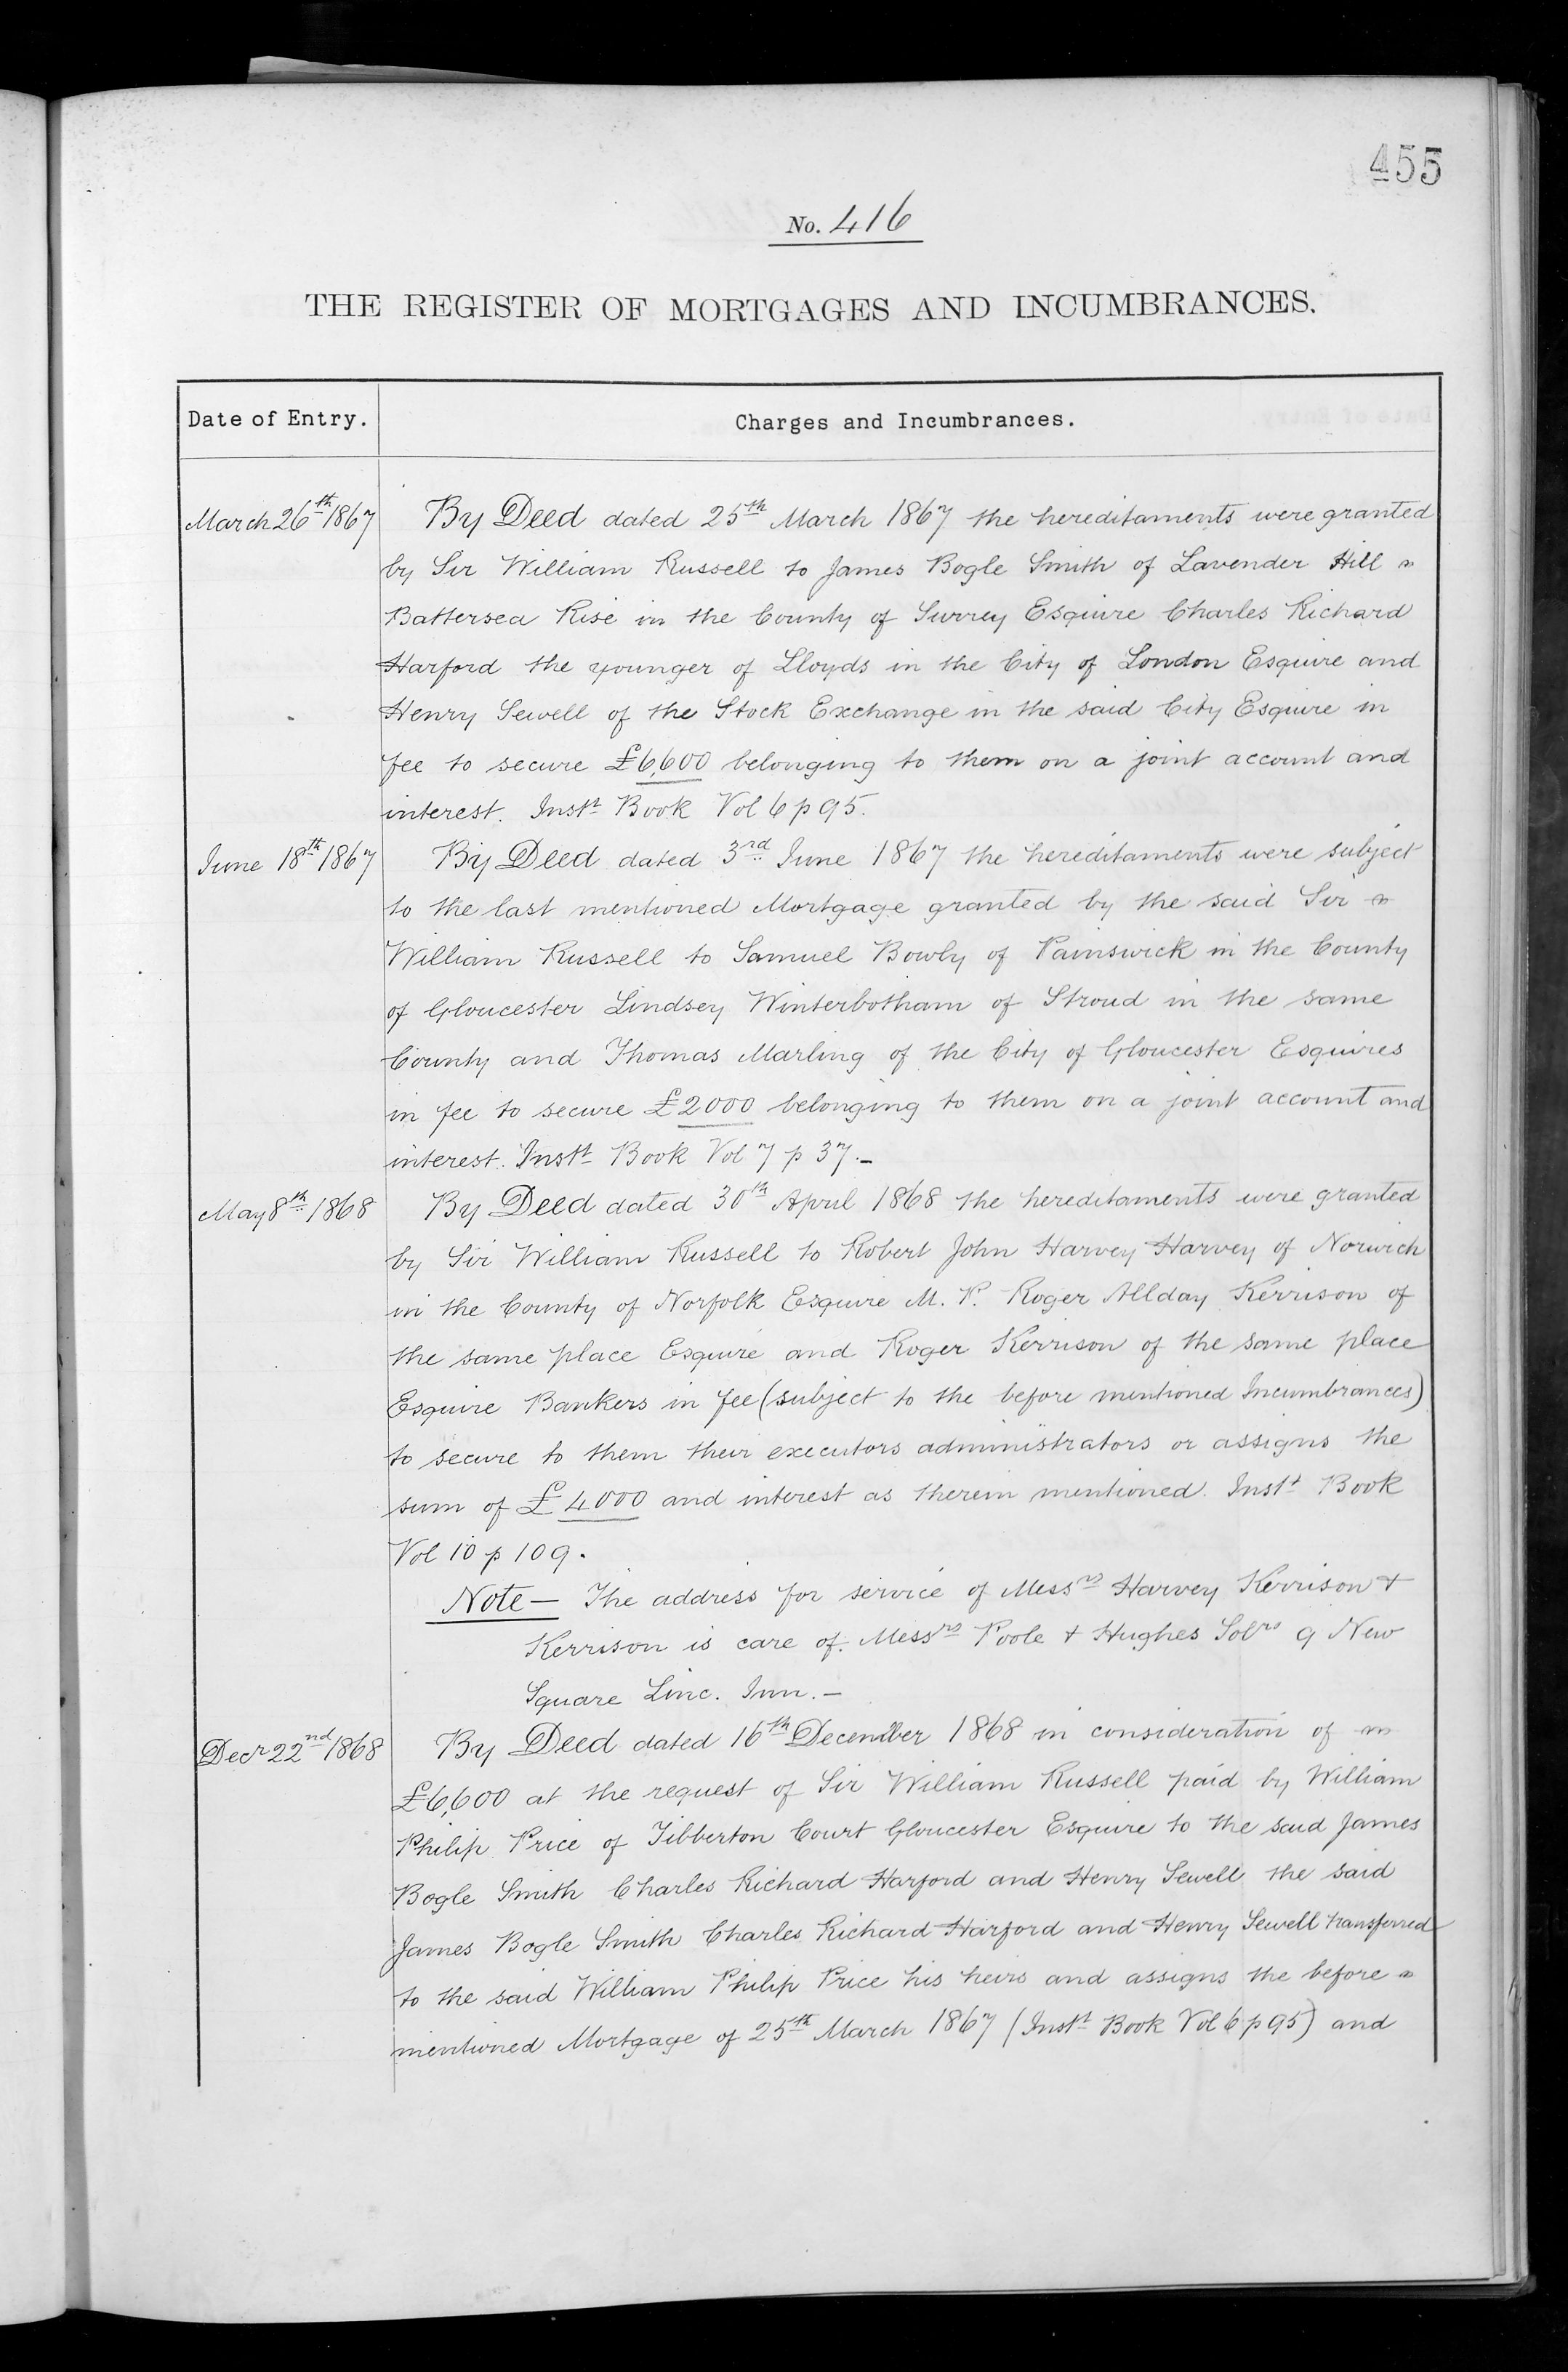 455
No. 416
THE REGISTER OF MORTGAGES AND INCUMBRANCES.
Date of Entry.
Charges and Incumbrances.
March 26th 1867
By Deed dated 25th March 1867 the hereditaments were granted
by Sir William Russell to James Bogle Smith of Lavender Hill
Battersea Rise in the County of Surrey Esquire Charles Richard
Harford the younger of Lloyds in the City of London Esquire and
Henry Sewell of the Stock Exchange in the said City Esquire in
fee to secure £6,600 belonging to them on a joint account and
interest. Instt Book Vol 6 p 95.
June 18th 1867
By Deed dated 3rd June 1867 the hereditaments were subject
to the last mentioned Mortgage granted by the said Sir
William Russell to Samuel Bowly of Painswick in the County
of Gloucester Lindsey Winterbotham of Stroud in the same
County and Thomas Marling of the City of Gloucester Esquires
in fee to secure £2000 belonging to them on a joint account and
interest. Instt Book Vol 7 p 37.—
May 8th 1868
By Deed dated 30th April 1868 the hereditaments were granted
by Sir William Russell to Robert John Harvey Harvey of Norwich
in the County of Norfolk Esquire M.P. Roger Allday Kerrison of
the same place Esquire and Roger Kerrison of the same place
Esquire Bankers in fee (subject to the before mentioned Incumbrances)
to secure to them their executors administrators or assigns the
sum of £4000 and interest as therein mentioned. Instt Book
Vol 10 p 109.
Note— The address for service of Messrs Harvey Kerrison +
Kerrison is care of. Messrs Poole + Hughes Solrs 9 New
Square Linc. Inn.—
Decr 22nd 1868
By Deed dated 16th December 1868 in consideration of
£6,600 at the request of Sir William Russell paid by William
Philip Price of Tibberton Court Gloucester Esquire to the said James
Bogle Smith Charles Richard Harford and Henry Sewell the said
James Bogle Smith Charles Richard Harford and Henry Sewell transferred
to the said William Philip Price his heirs and assigns the before
mentioned Mortgage of 25th March 1867 (Instt Book Vol 6 p 95) and